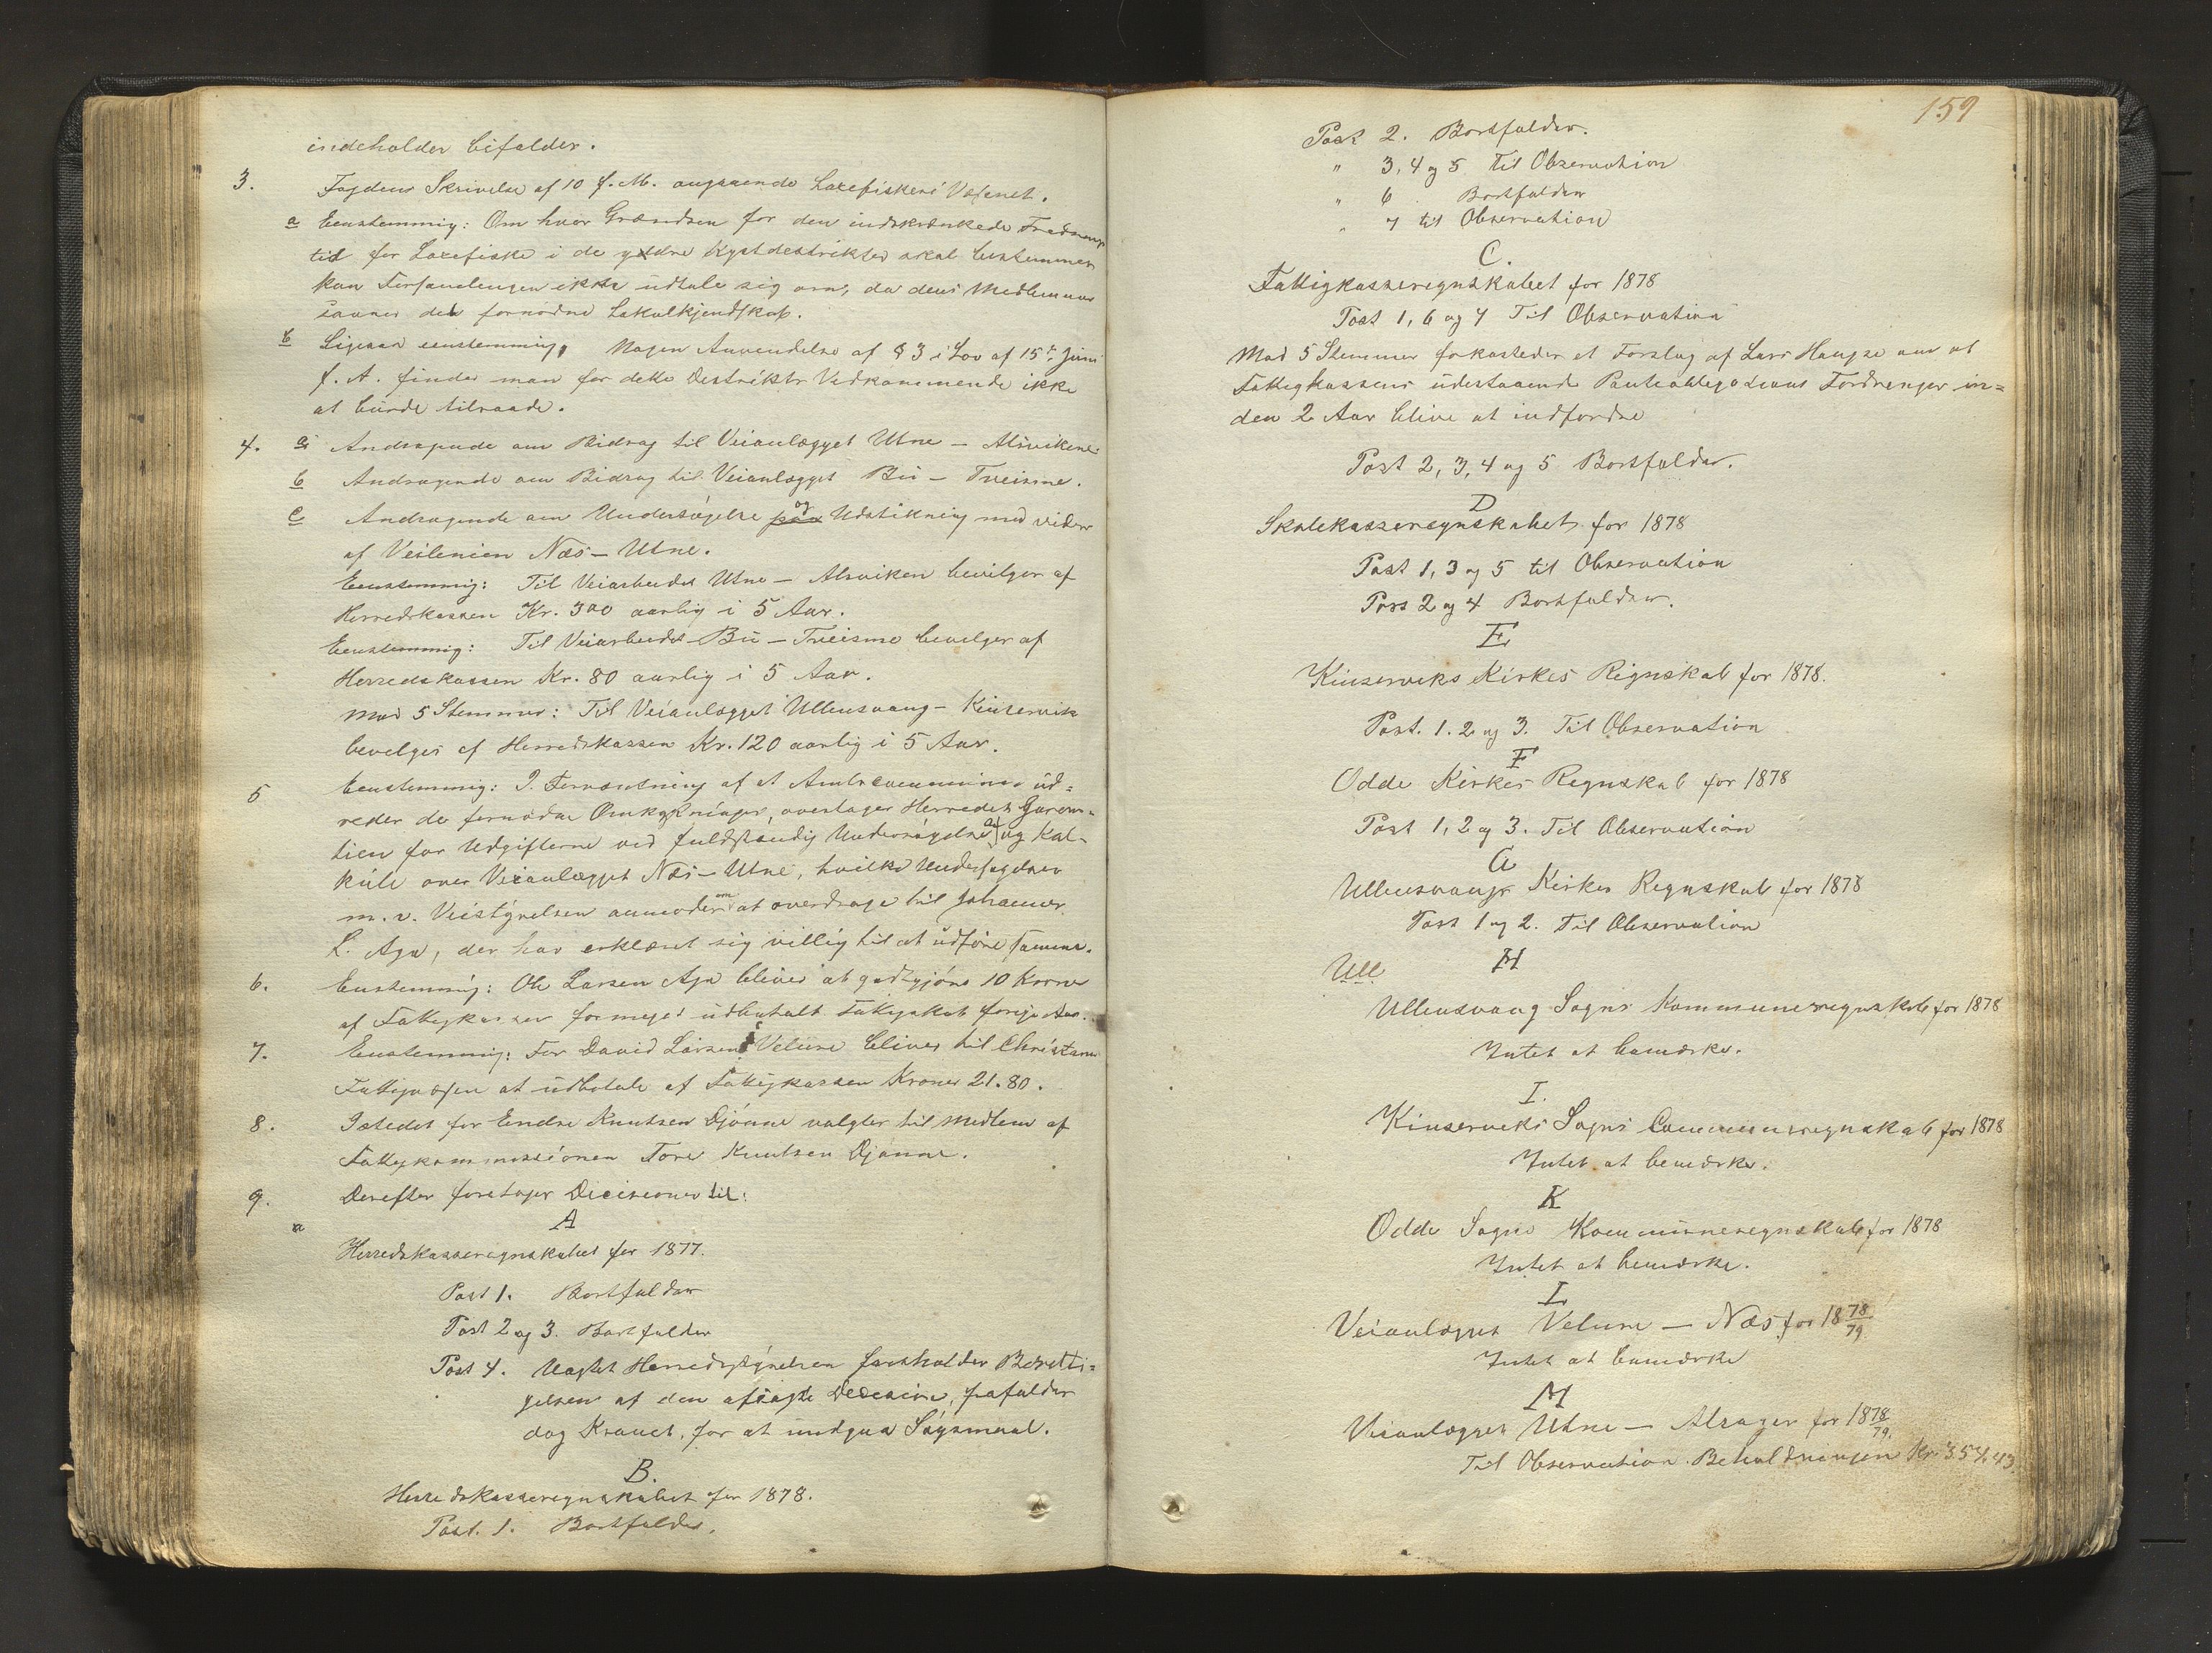 indeholder bifalder.
3. Fogdens Skrivelse af 10 f. M. angaaende Laxefiskeri Væsenet.
a Eenstemmig: Om hvor Grændsen for den indskrænkede Frednings
tid for Laxefiske i de ydre Kystdestrikter skal bestemmes
kan Forsamlingen ikke udtale sig om, da dens Medlemmer
savner den fornødne Lokalkjendskab.
b Ligesaa eenstemmig, Nogen Anvendelse af § 3 i Lov af 15de Juni
f. A. finder man for dette Destrikts Vedkommende ikke
at burde tilraade.
4. a Andragende om Bidrag til Veianlægget Utne – Alsvikene
b Andragende om Bidrag til Veianlægget Bu – Tveisme.
c Andragende om Undersøgelse og Udstikning med videre
af Veilenien Næs – Utne.
Eenstemmig: Til Veiarbeidet Utne – Alsviken bevilges af
Herredskassen Kr. 300 aarlig i 5 Aar.
Eenstemmig: Til Veiarbeidet Bu – Tveisme bevelges af
Herredskassen Kr. 80 aarlig i 5 Aar.
Mod 5 Stemmer: Til Veianlægget Ullensvang – Kinservik
bevelges af Herredskassen Kr. 120 aarlig i 5 Aar.
5 Eenstemmig: I Forudsætning af at Amtscommunen ud=
reder de fornødne Omkostninger, overtager Herredet Garan-
tien for Udgifterne ved fuldstændig Undersøgelse af og Kal-
kule over Veianlægget Næs – Utne, hvilke Undersøgelser
m. v. Veistyrelsen anmodes om at overdrage til Johannes
L. Aga, der har erklæret sig villig til at udføre samme.
6. Eenstemmig: Ole Larsen Aga bliver at godtgjøre 10 Kroner
af Fattigkassen formeget udbetalt Fattigskat forige Aar.
7. Eenstemmig: For David Larsen Velure bliver til Christiania
Fattigvæsen at udbetale af Fattigkassen Kroner 21.80.
8. Istedet for Endre Knutsen Djønne valgtes til Medlem af
Fattigkommissionen Tore Knutsen Djønne.
9. Derefter foretoges Decisioner til:
A
Herredskasseregnskabet for 1877.
Post 1. Bortfalder
Post 2 og 3. Bortfalder
Post 4. Uagtet Herredsstyrelsen fastholder Beretti=
gelsen af den afsagte Decision, frafalder
dog Kravet, for at undgaa Søgsmaal.
B.
Herredskasseregnskabet for 1878.
Post. 1. Bortfalder.
159
Post 2. Bortfalder.
" 3, 4 og 5 til Observation
" 6 Bortfalder
" 7 til Observation
C.
Fattigkasseregnskabet for 1878
Post 1, 6 og 7 Til Observation
Mod 5 Stemmer forkastedes et Forslag af Lars Hauge om at
Fattigkassens udestaaende Panteobligations Fordringer in=
den 2 Aar blive at indfordre
Post 2, 3, 4 og 5 Bortfalder.
D
Skolekasseregnskabet for 1878
Post 1, 3 og 5 til Observation
Post 2 og 4 Bortfalder.
E
Kinserviks Kirkes Regnskab for 1878.
Post. 1. 2 og 3. Til Observation
F
Odde Kirkes Regnskab for 1878
Post 1, 2 og 3. Til Observation
G
Ullensvangs Kirkes Regnskab for 1878
Post 1 og 2. Til Observation
Ull H
Ullensvang Sogns Kommuneregnskab for 1878
Intet at bemærke.
I.
Kinserviks Sogns Communeregnskab for 1878
Intet at bemærke.
K
Odde Sogns Kommuneregnskab for 1878
Intet at bemærke.
L
Veianlægget Velure – Næs for 1878/79
Intet at bemærke
M
Veianlægget Utne – Alsager for 1878/79.
Til Observation Beholdningen Kr. 354,43.